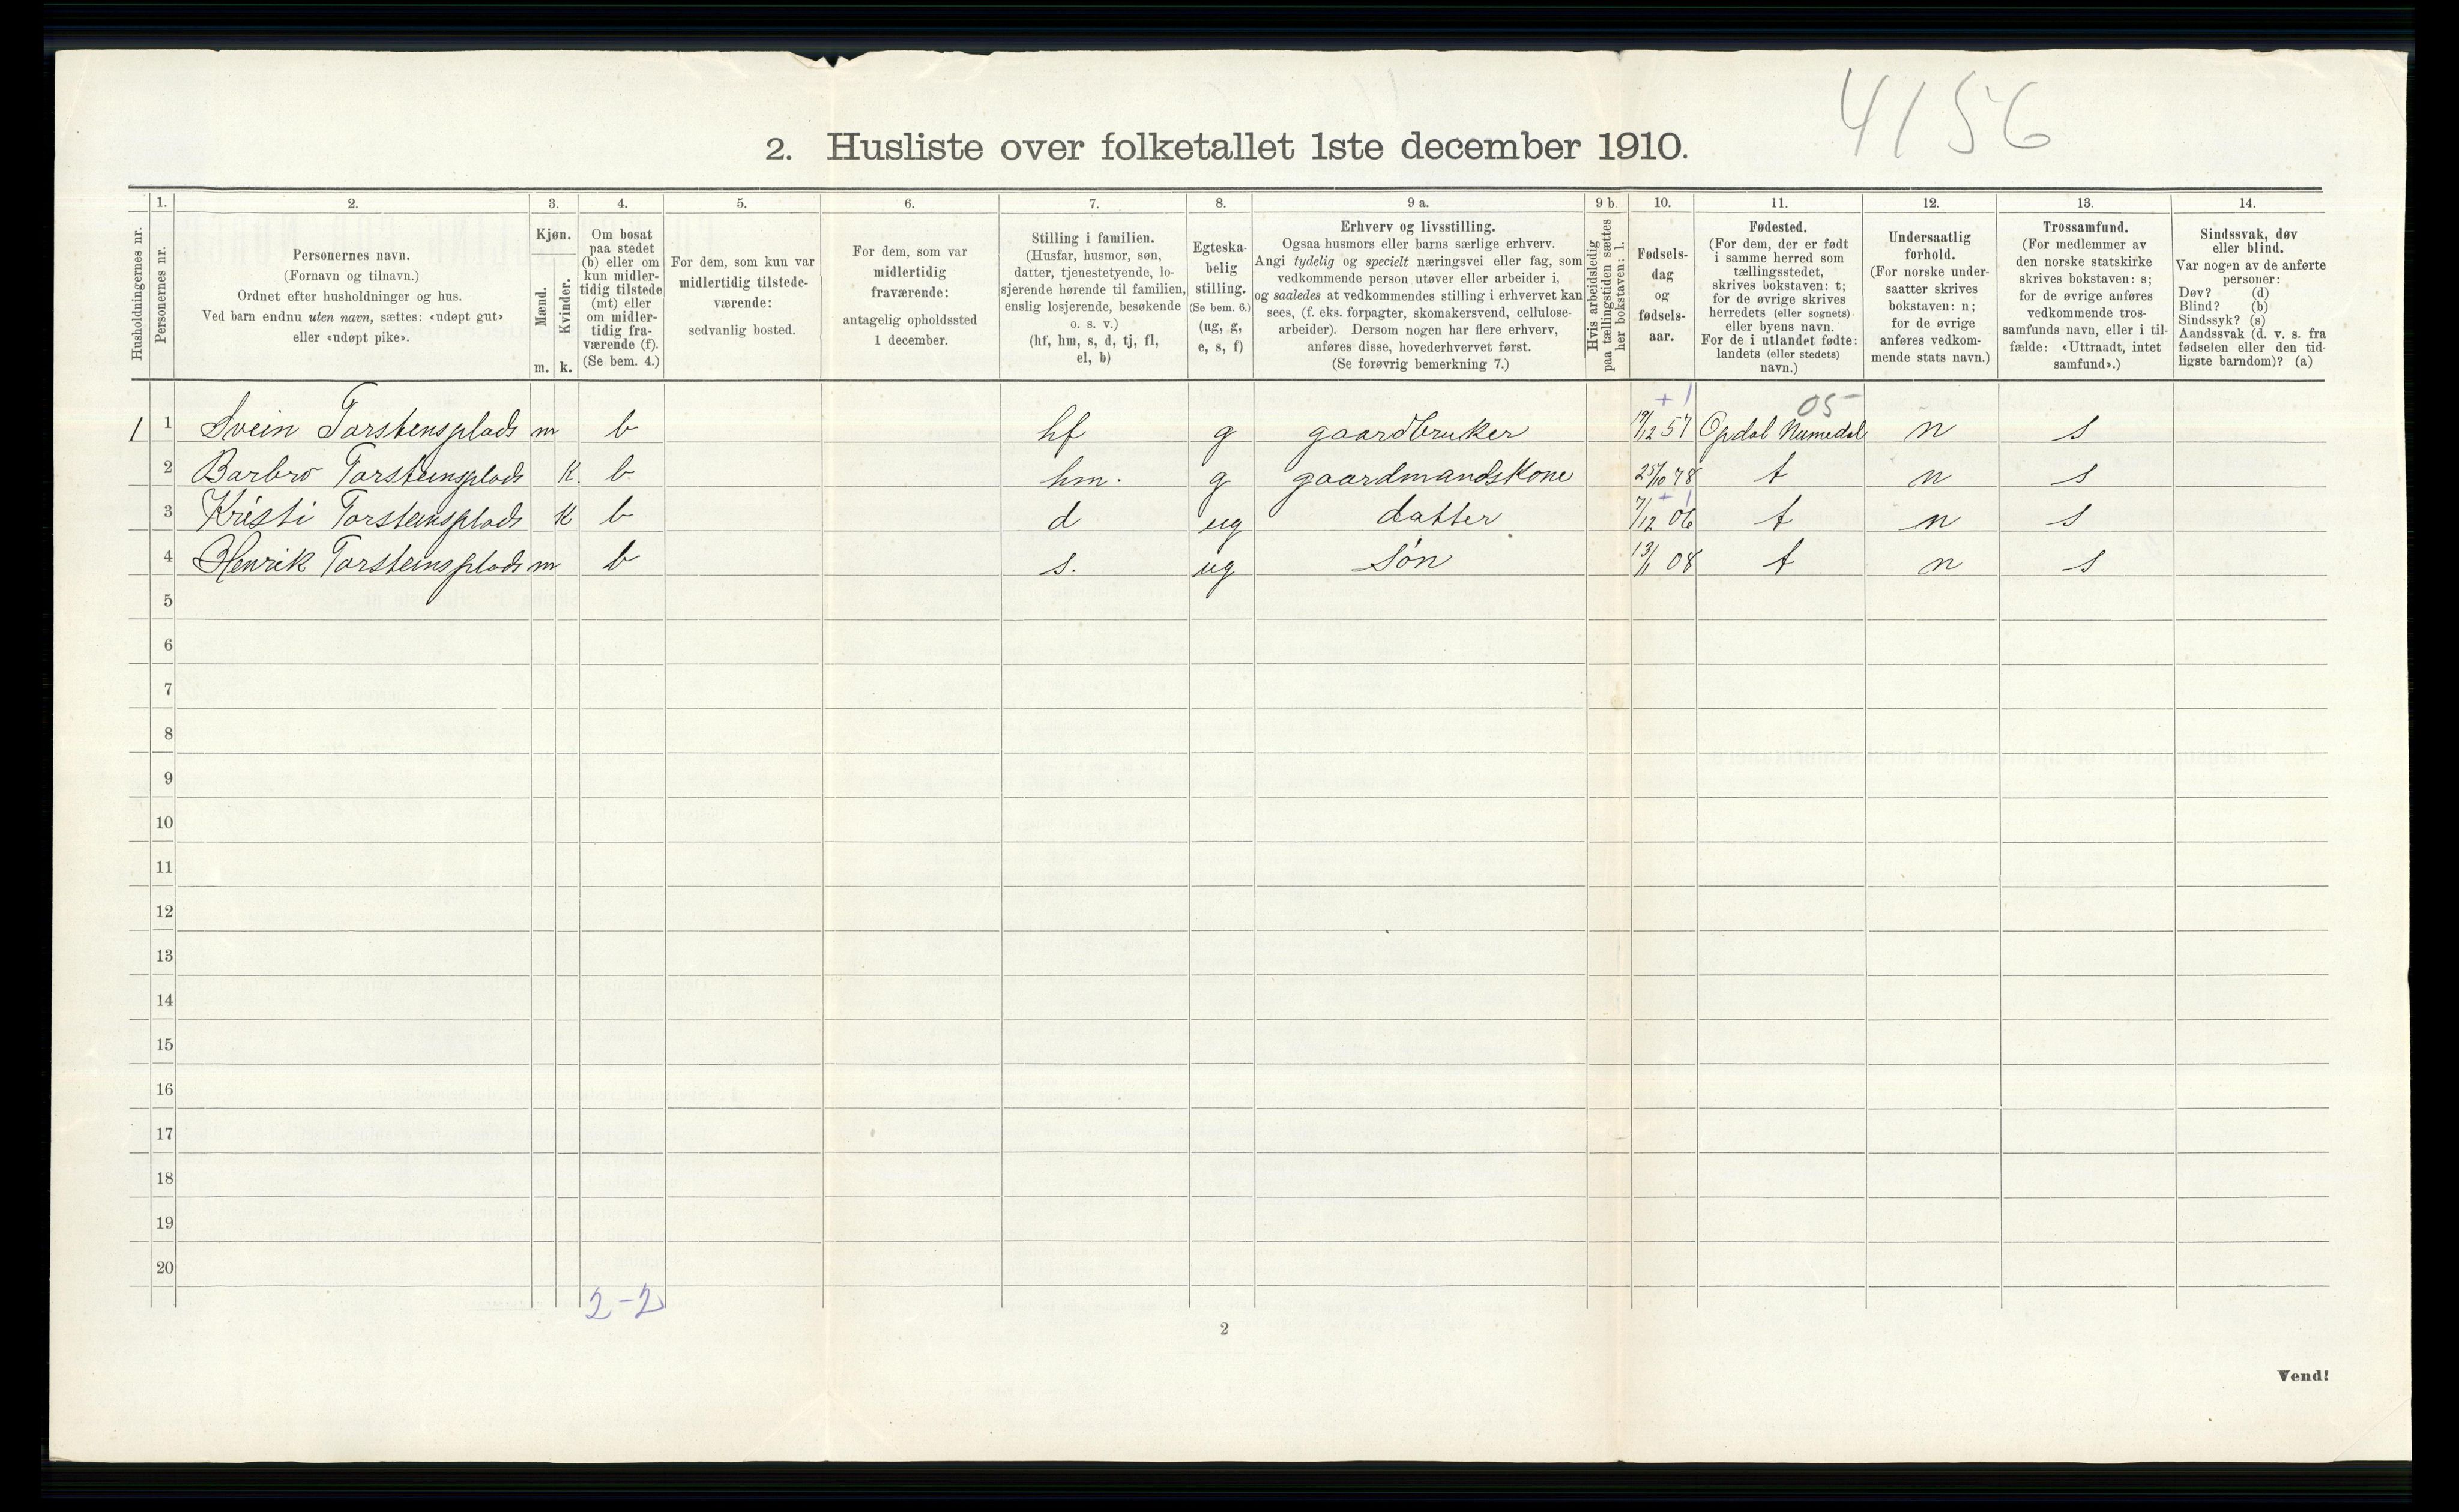 4156
2. Husliste over folketallet 1ste december 1910.
Husholdningernes nr.
1.
Personernes nr.
2.
Personernes navn.
(Fornavn og tilnavn.)
Ordnet efter husholdninger og hus.
Ved barn endnu uten navn, sættes: «udøpt gut»
eller «udøpt pike».
3.
Kjøn.
Mænd.
Kvinder.
m. k.
4.
Om bosat
paa stedet
(b) eller om
kun midler-
tidig tilstede
(mt) eller
om midler-
tidig fra-
værende (f).
(Se bem. 4.)
5.
For dem, som kun var
midlertidig tilstede-
værende:
sedvanlig bosted.
6.
For dem, som var
midlertidig
fraværende:
antagelig opholdssted
1 december.
7.
Stilling i familien.
(Husfar, husmor, søn,
datter, tjenestetyende, lo-
sjerende hørende til familien,
enslig losjerende, besøkende
o. s. v.)
(hf, hm, s, d, tj, fl,
el, b)
8.
Egteska-
belig
stilling.
(Se bem. 6.)
(ug, g,
e, s, f)
9 a.
Erhverv og livsstilling.
Ogsaa husmors eller barns særlige erhverv.
Angi tydelig og specielt næringsvei eller fag, som
vedkommende person utøver eller arbeider i,
og saaledes at vedkommendes stilling i erhvervet kan
sees, (f. eks. forpagter, skomakersvend, cellulose-
arbeider). Dersom nogen har flere erhverv,
anføres disse, hovederhvervet først.
(Se forøvrig bemerkning 7.)
9 b.
Hvis arbeidsledig
paa tællingstiden sættes
her bokstaven: l.
10.
Fødsels-
dag
og
fødsels-
aar.
11.
Fødested.
(For dem, der er født
i samme herred som
tællingsstedet,
skrives bokstaven: t;
for de øvrige skrives
herredets (eller sognets)
eller byens navn.
For de i utlandet fødte:
landets (eller stedets)
navn.)
12.
Undersaatlig
forhold.
(For norske under-
saatter skrives
bokstaven: n;
for de øvrige
anføres vedkom-
mende stats navn.)
13.
Trossamfund.
(For medlemmer av
den norske statskirke
skrives bokstaven: s;
for de øvrige anføres
vedkommende tros-
samfunds navn, eller i til-
fælde: «Uttraadt, intet
samfund».)
14.
Sindssvak, døv
eller blind.
Var nogen av de anførte
personer:
Døv? (d)
Blind? (b)
Sindssyk? (s)
Aandssvak (d. v. s. fra
fødselen eller den tid-
ligste barndom)? (a)
+ 1 05-
1 1 Svein Torstensplads m b hf g gaardbruker 19/12 57 Opdal Numedal n s
2 Barbro Torsteinsplads K. b hm. g gaardmandskone 25/10 78 t n s
+ 1
3 Kristi Torsteinsplads K b d ug datter 7/12 06 t n s
4 Henrik Torsteinsplads m b s. ug søn 13/1 08 t n s
5
6
7
8
9
10
11
12
13
14
15
16
17
18
19
20
2-2
2
Vend!